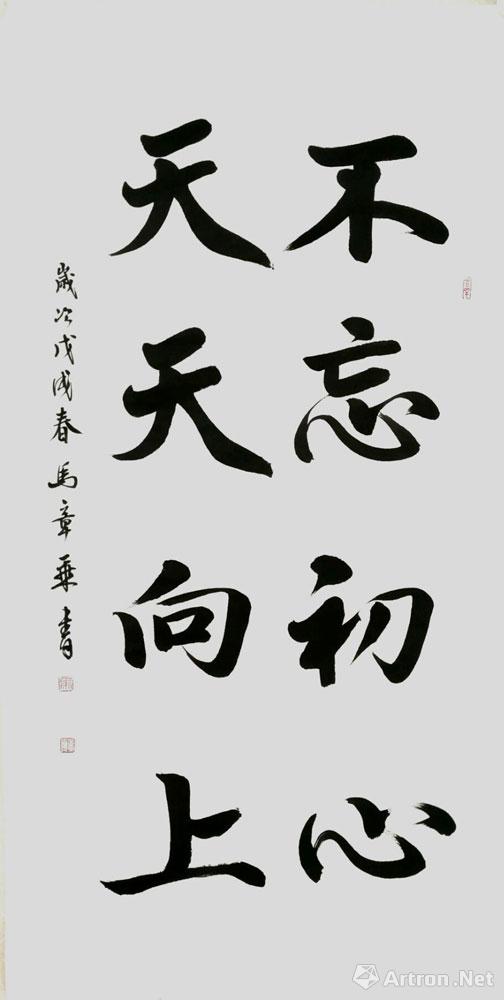 不忘初心
天天向上
歲次戊戌春馬章乘書
Artron.Net